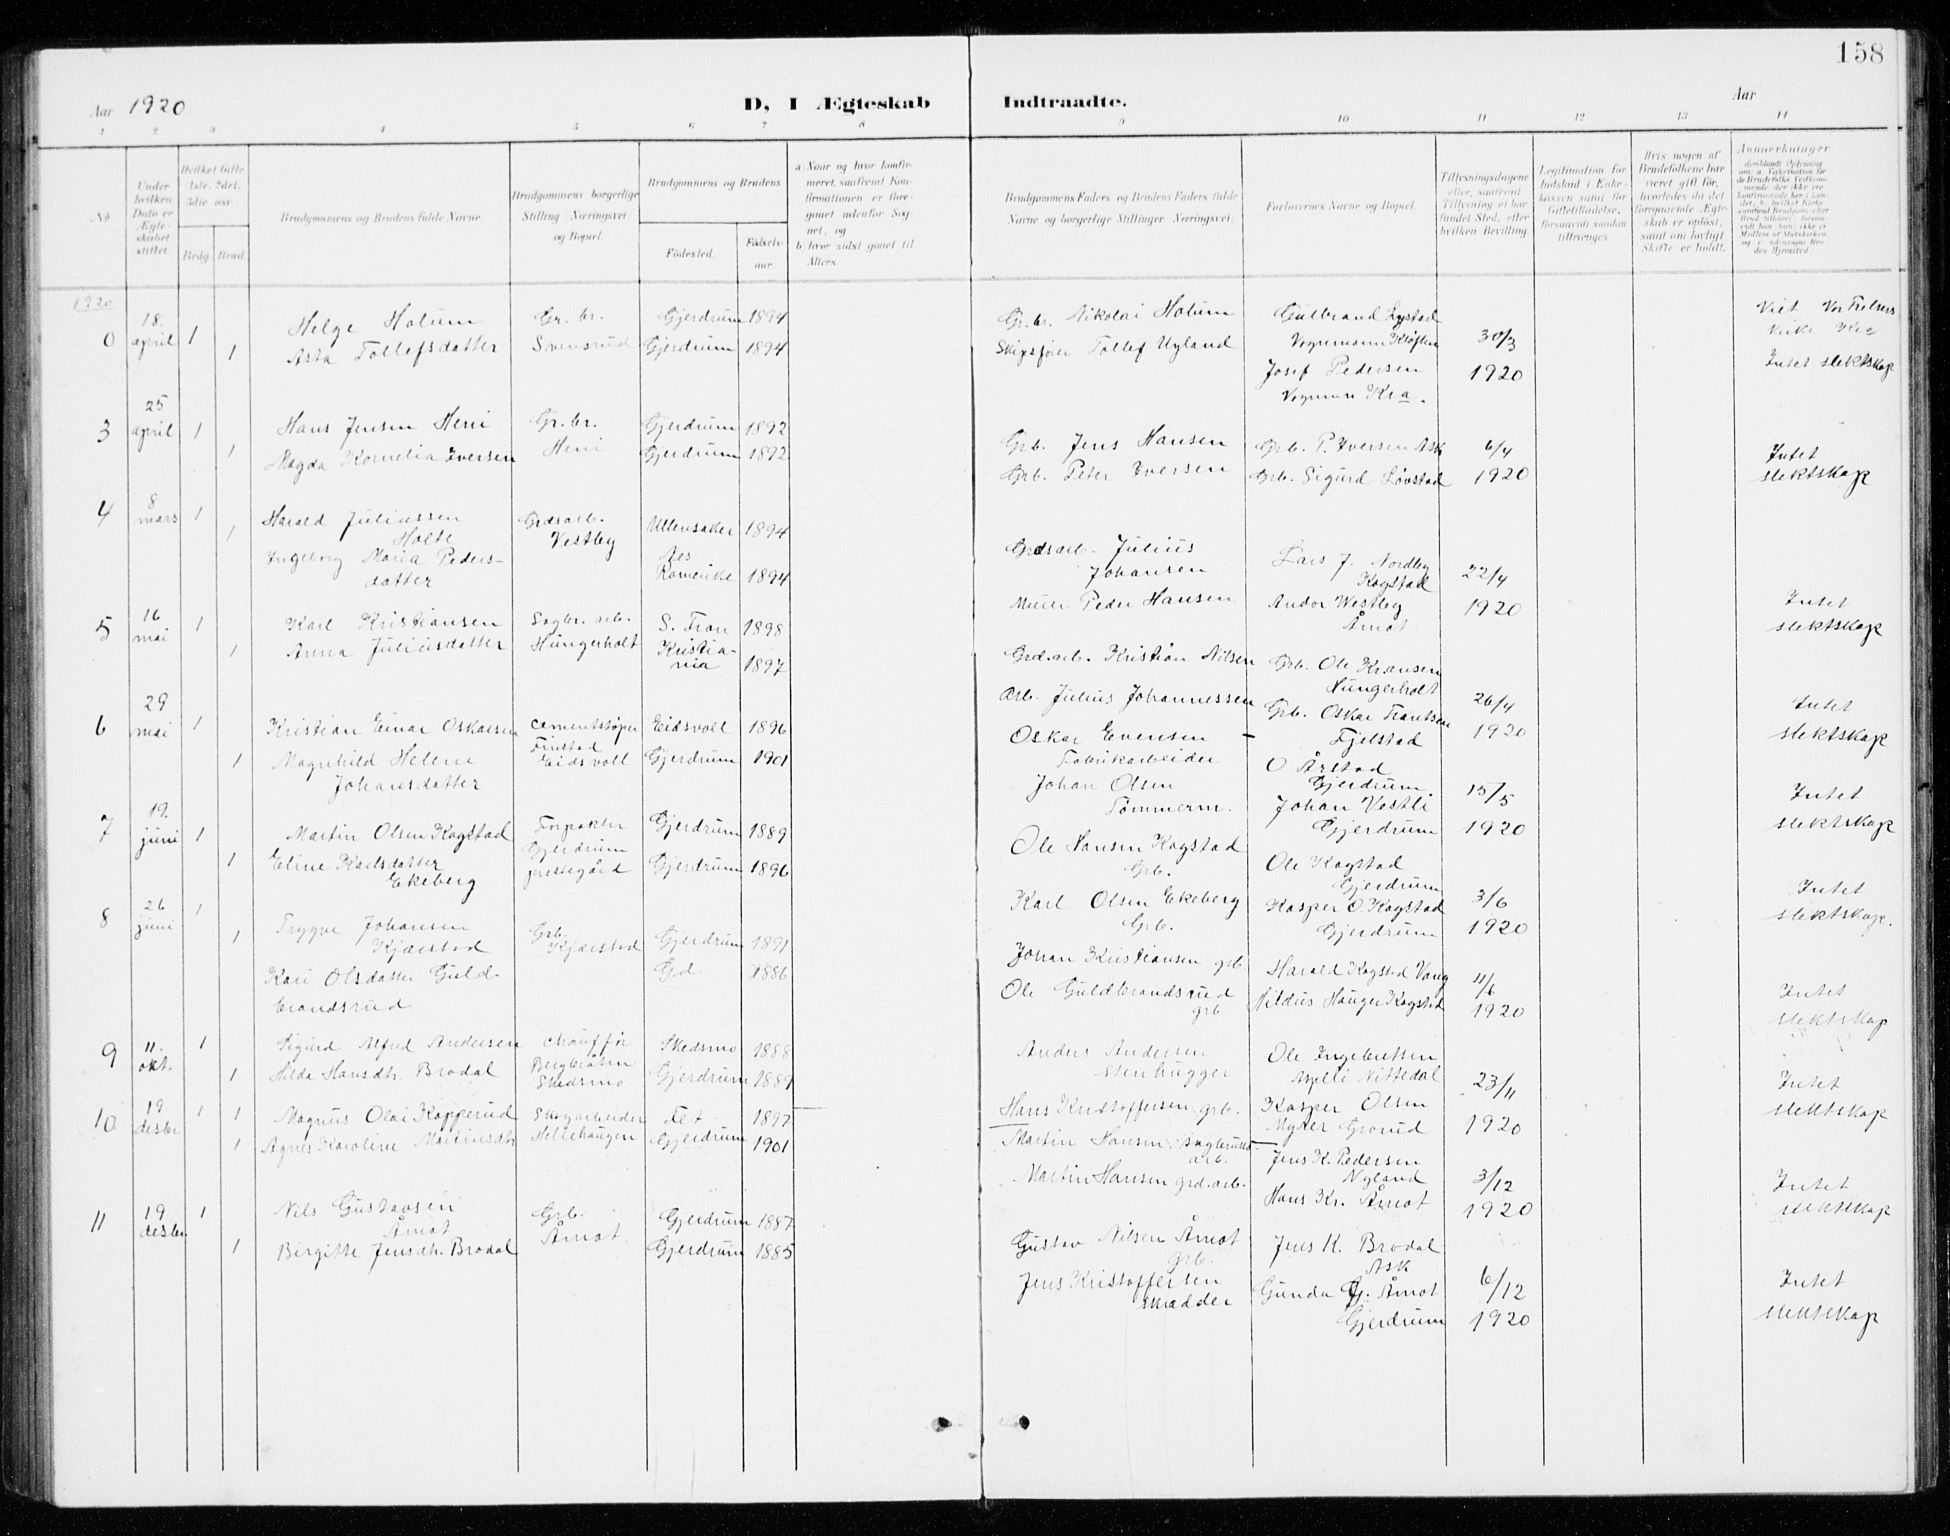 158
Aar 1920
D, I Ægteskab Indtraadte.
Aar
1 2 3 4 5 6 7 8 9 10 11 12 13 14
No.
Under hvilken Dato er Ægteskabet stiftet.
Hvilket Gifte 1ste, 2det, 3die osv.
Brdg. Brud.
Brudgommens og Brudens fulde Navne
Brudgommens borgerlige Stilling (Næringsvei) og Bopæl.
Brudgommens og Brudens
Fødested.
Fødselsaar
a. Naar og hvor konfirmeret, samfremt Konfirmationen er foregaaet udenfor Sognet, og
b. hvor sidst gaaet til Alters.
Brudgommens Faders og Brudens Faders fulde Navne og borgerlige Stillinger (Næringsvei)
Forlovernes Navne og Bopæl.
Tillysningsdagene eller, saafremt Tillysning ei har fundet Sted, efter hvilken Bevilling
Legitimation for Indskud i Enkekassen samt for Giftetilladelse, forsaavidt saadan tiltrænges.
Hvis nogen af Brudefolkene har været gift før, hvorledes da det foregaaende Ægteskab er opløst, samt om lovligt Skifte er holdt.
Anmerkninger
1920
0 18. april 1 Helge Holum Gr. br. Gjerdrum 1894 Gr. br. Nikolai Holum Gulbrand Lystad
1 Asta Tollefsdatter Svensrud Gjerdrum 1894 Skipsfører Tollef Ugland Vognmann Kløften 30/3
Josef Pedersen 1920 Intet slektskap
Vognm Kra.
3 25 april 1 Hans Jensen Heni Gr. br. Gjerdrum 1892 Grb. Jens Hansen Grb. P. Iversen Ask 6/4 Intet
1 Magda Kornelia Iversen Heni Gjerdrum 1892 Grb. Peter Iversen Grb. Sigurd Løvstad 1920 slektskap
4 8 mars 1 Harald Juliussen Grdsarb. Ullensaker 1894
1 Holte Vestby
Ingeborg Maria Peders- Nes Grdsarb. Julius Lars J. Nordby
datter Romerike 1894 Johansen Kogstad 22/4
Murer Peder Hansen Andor Westby 1920 Intet
Åmot slektskap
5 16 mai 1 Karl Kristiansen Sagbr. arb. S. Fron 1898
1 Anna Juliusdatter Hungerholt Kristia-
nia 1897 Grd.arb. Kristian Nilsen Grb. Ole Kransen
Hungerholt
Arb. Julius Johannessen Grb. Oskar Frantsen 26/4 Intet
Fjelstad 1920 slektskap
6 29 mai 1 Kristian Einar Oskarsen Cementstøper Eidsvoll 1896 Oskar Evensen -
Finstad Fabrikarbeider O Årstad
1 Magnhild Helene Eidsvoll Gjerdrum 1901 Gjerdrum.
Johansdatter Johan Olsen Johan Vestli 15/5 Intet
Tømmerm. Gjerdrum 1920 slektskap
7 19. juni 1 Martin Olsen Kogstad Forpakter Gjerdrum 1889 Ole Hansen Kogstad
Gjerdrum Grb. Ole Kogstad
1 Eline Karlsdatter prestegård Gjerdrum 1896 Gjerdrum
Ekeberg Karl Olsen Ekeberg Kasper O. Kogstad 3/6 Intet
Grb. Gjerdrum 1920 slektskap.
8 26 juni 1 Trygve Johansen Grb. Gjerdrum 1891
1 Kjærstad Kjærstad Johan Kristiansen grb.
Kari Olsdatter Guld- Gd. 1886 Harald Kogstad Vang 11/6
brandsrud Ole Guldbrandsrud Nildus Hauger Kogstad 1920 Intet
grb. slektskap
9 11. okt. 1 Sigurd Alfred Andersen Chauffør Skedsmo 1888 Anders Andersen Ole Ingebretsen
Bergbråten Stenhugger Nittedal
1 Hilda Hansdtr. Brodal Skedsmo Gjerdrum 1889 23/11 Intet
Hans Kristoffersen grb. Kasper Olsen 1920 slektskap
Myrer Grorud
10 19 desbr 1 1 Magnus Olai Kopperud Skogarbeider Fet 1897 Martin Hansen Sagbruks-
arb. Jens K. Pedersen
1 Agnes Karoline Martinsdtr Hellehaugen Gjerdrum 1901 Nyland
Martin Hansen grd.arb. Hans Kr. Åmot 3/12 Intet
1920 slektskap
11 19 desbr 1 Nils Gustavsen Grb. Gjerdrum 1887
Åmot Åmot Gustav Nilsen Åmot Jens K. Brodal
1 Birgitte Jensdtr. Brodal Gjerdrum 1885 grb. Ask
Jens Kristoffersen Gunda G. Åmot 6/12 Intet
Skrædder Gjerdrum 1920 slektskap